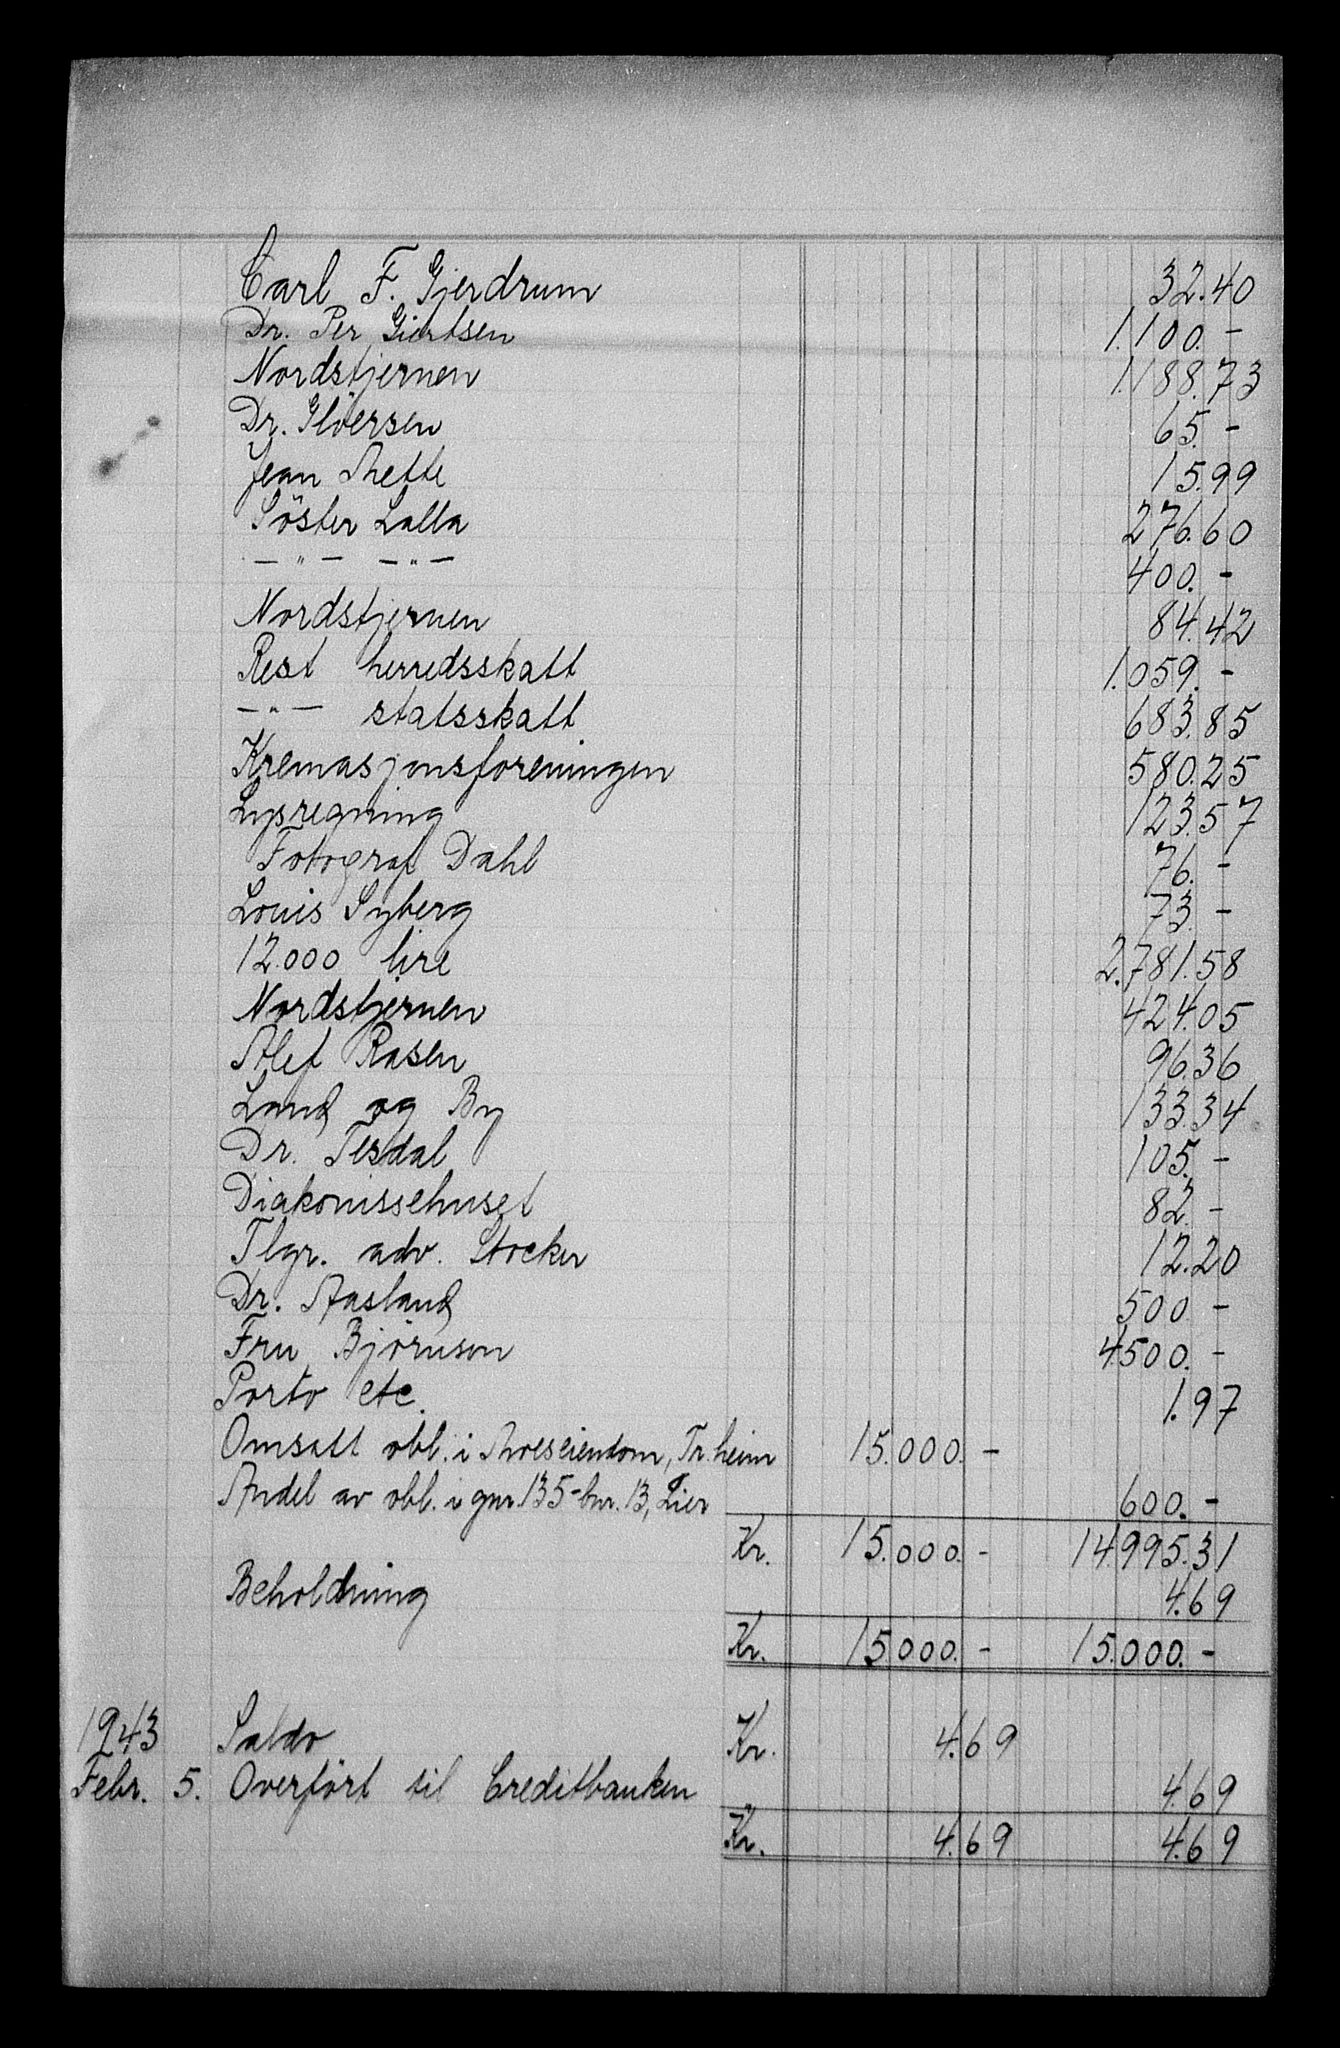 Carl F. Gjerdrum 32.40
Dr. Per Giertsen 1.100.-
Nordstjernen 1.188.73
Dr. Glöersen 65.-
Jean Mette 15.99
Söster Lalla 276.60
-"- -"- 400.-
Nordstjernen 84.42
Rest herredsskatt 1.059.-
-"- statsskatt 683.85
Kremasjonsforeningen 580.25
Lysregning 123.57
Fotograf Dahl 76.-
Louis Syberg 73.-
12.000 lire 2.781.58
Nordstjernen 424.05
Alef Rasen 96.36
Land og By 133.34
Dr. Tesdal 105.-
Diakonissehuset 82.-
Tlgr. adv. Stocker 12.20
Dr. Aasland 500-
Fru Bjørnson 4500.-
Porto etc. 1.97
Omsatt obl. i Tr.heim 15.000.-
Andel av obl. i gnr. 135-bnr. 13, Lier 600.-
Kr. 15.000.- 14.995.31
Beholdning 4.69
Kr. 15.000.- 15.000.-
1943 Saldo Kr. 4.69
Febr. 5. Overført til Creditbanken 4.69
Kr. 4.69 4.69